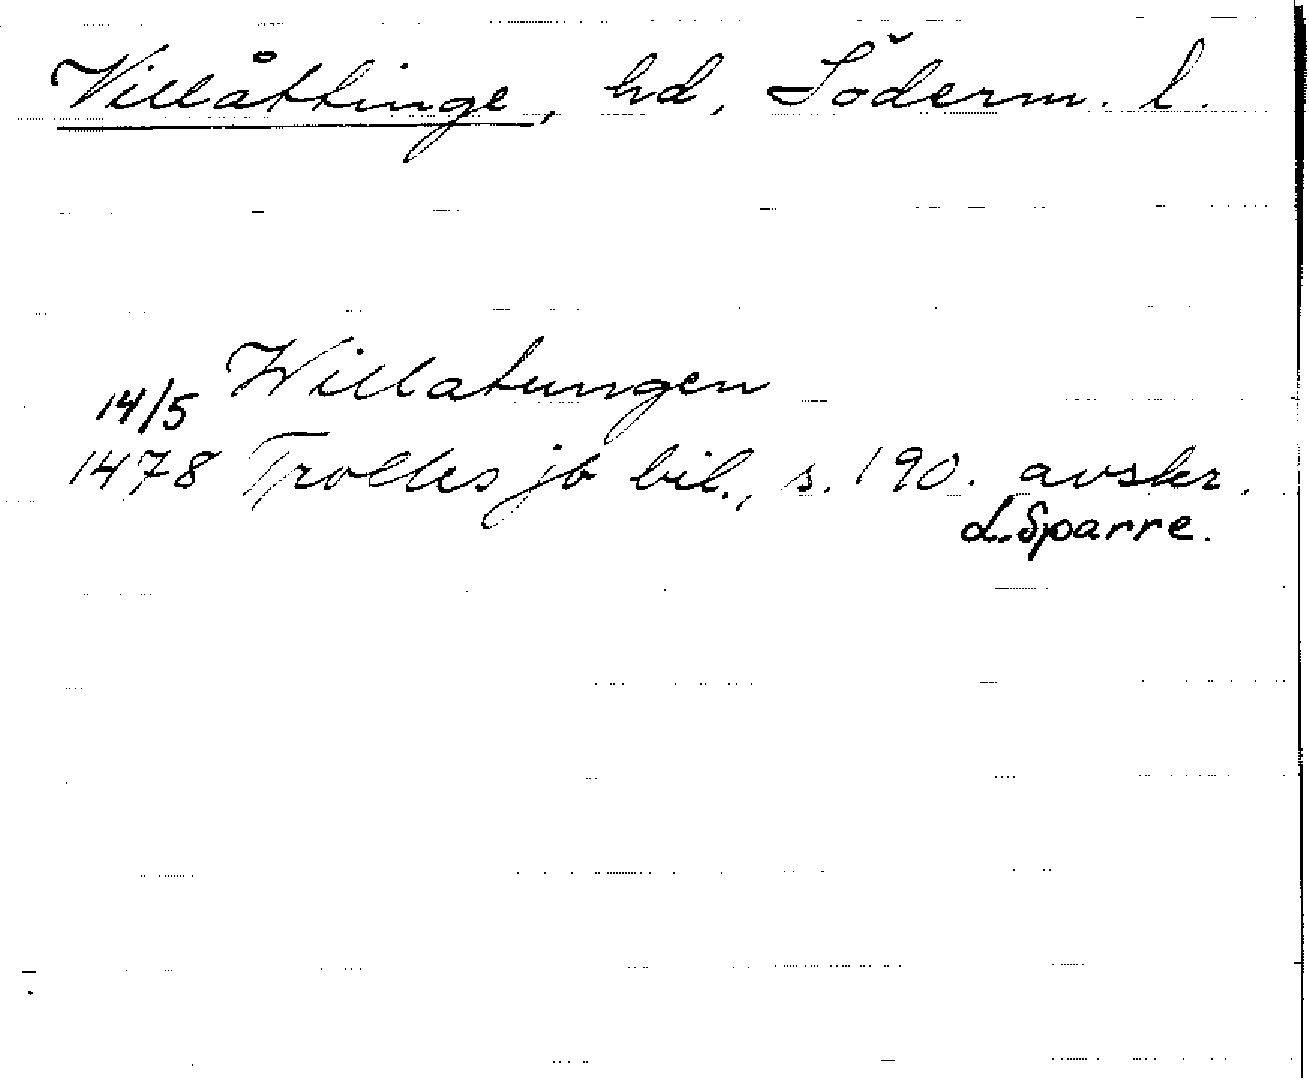 Villåttinge, hd, Söderm. l.
Willatungen
14/5
1478 Trolles jb bil., s. 190. avskr.
L. Sparre.